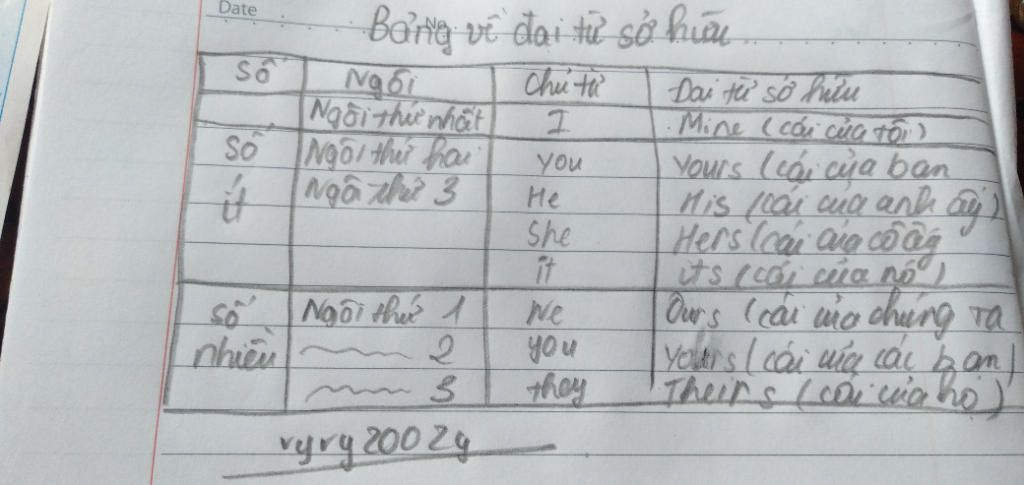 Date
No.
Bảng về đại từ sở hữu
Số Ngôi Chủ từ Đại từ sở hữu
Ngôi thứ nhất I Mine (cái của tôi)
Số Ngôi thứ hai you yours (cái của bạn
ít Ngôi thứ 3 He His (cái của anh ấy)
She Hers (cái của cô ấy
it its (cái của nó)
số Ngôi thứ 1 We Ours (cái của chúng ta
nhiều 2 you yours (cái của các bạn)
3 they Theirs (cái của họ)
vyvy2002y